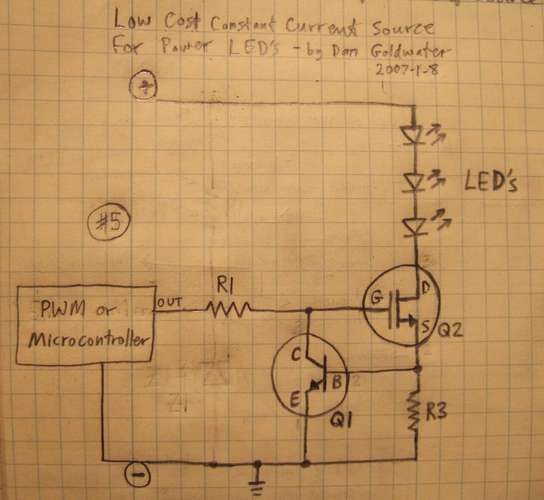 Low Cost Constant Current Source
For Power LED's - by Dan Goldwater
2007-1-8
+
LED's
#5
R1
OUT
PWM or
Microcontroller
G
D
S
Q2
C
B
E
Q1
R3
-